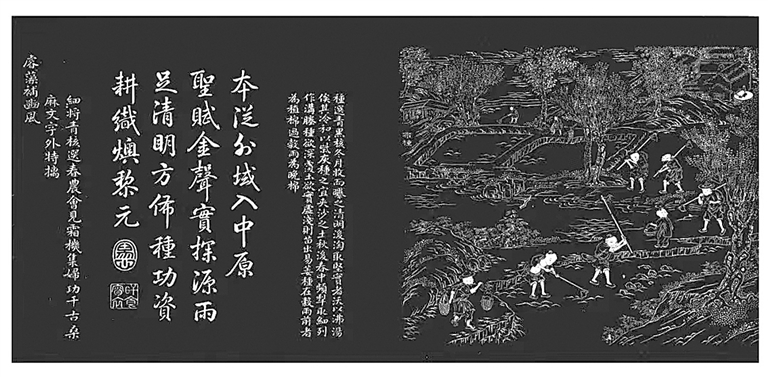 布種
種選青黑核冬月收而曝之清明後淘取堅實者沃以沸湯
俟其冷和以柴灰種之宜夾沙之土秋後春中頻犂取細列
作溝塍種欲深覆土欲實虛淺則苗出易萎種在穀雨前者
為植棉過穀雨為晚棉
本從外域入中原
聖賦金聲實探源雨
足清明方佈種功資
耕織燠黎元
細將青核選春農會見霜機集婦功千古桑
麻文字外特摛
睿藻補豳風